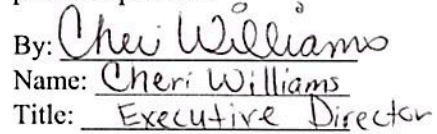 By: Cheri Williams
Name: Cheri Williams
Title: Executive Director